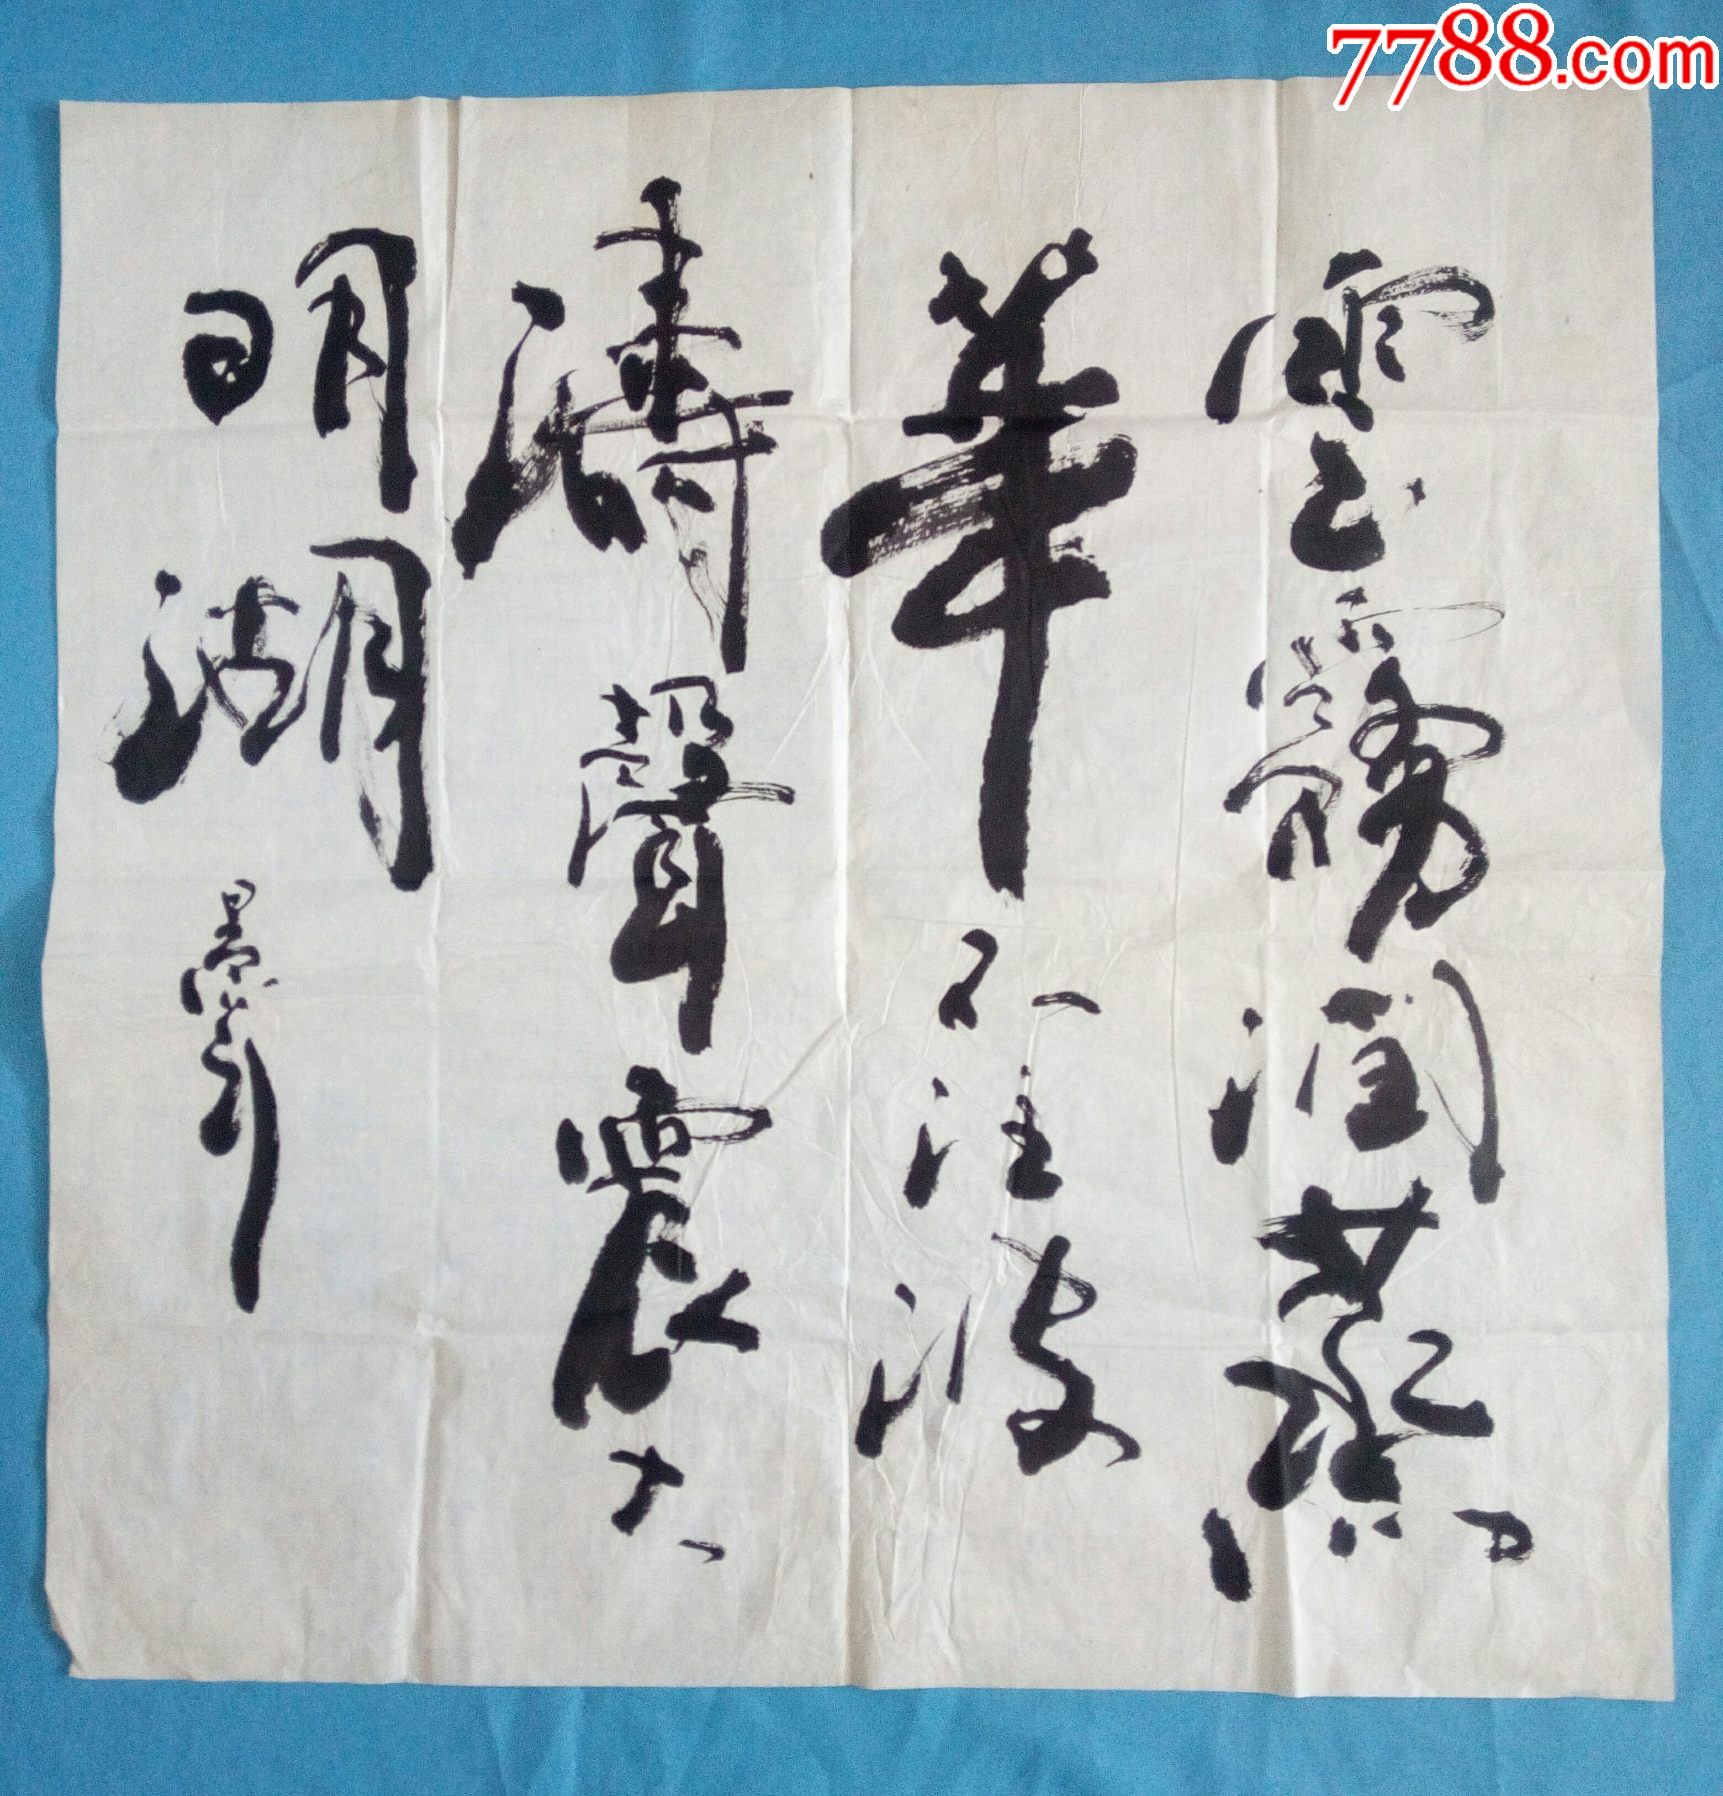 7788.com
雲霧潤蒸
華不注波
濤聲震大
明湖 墨